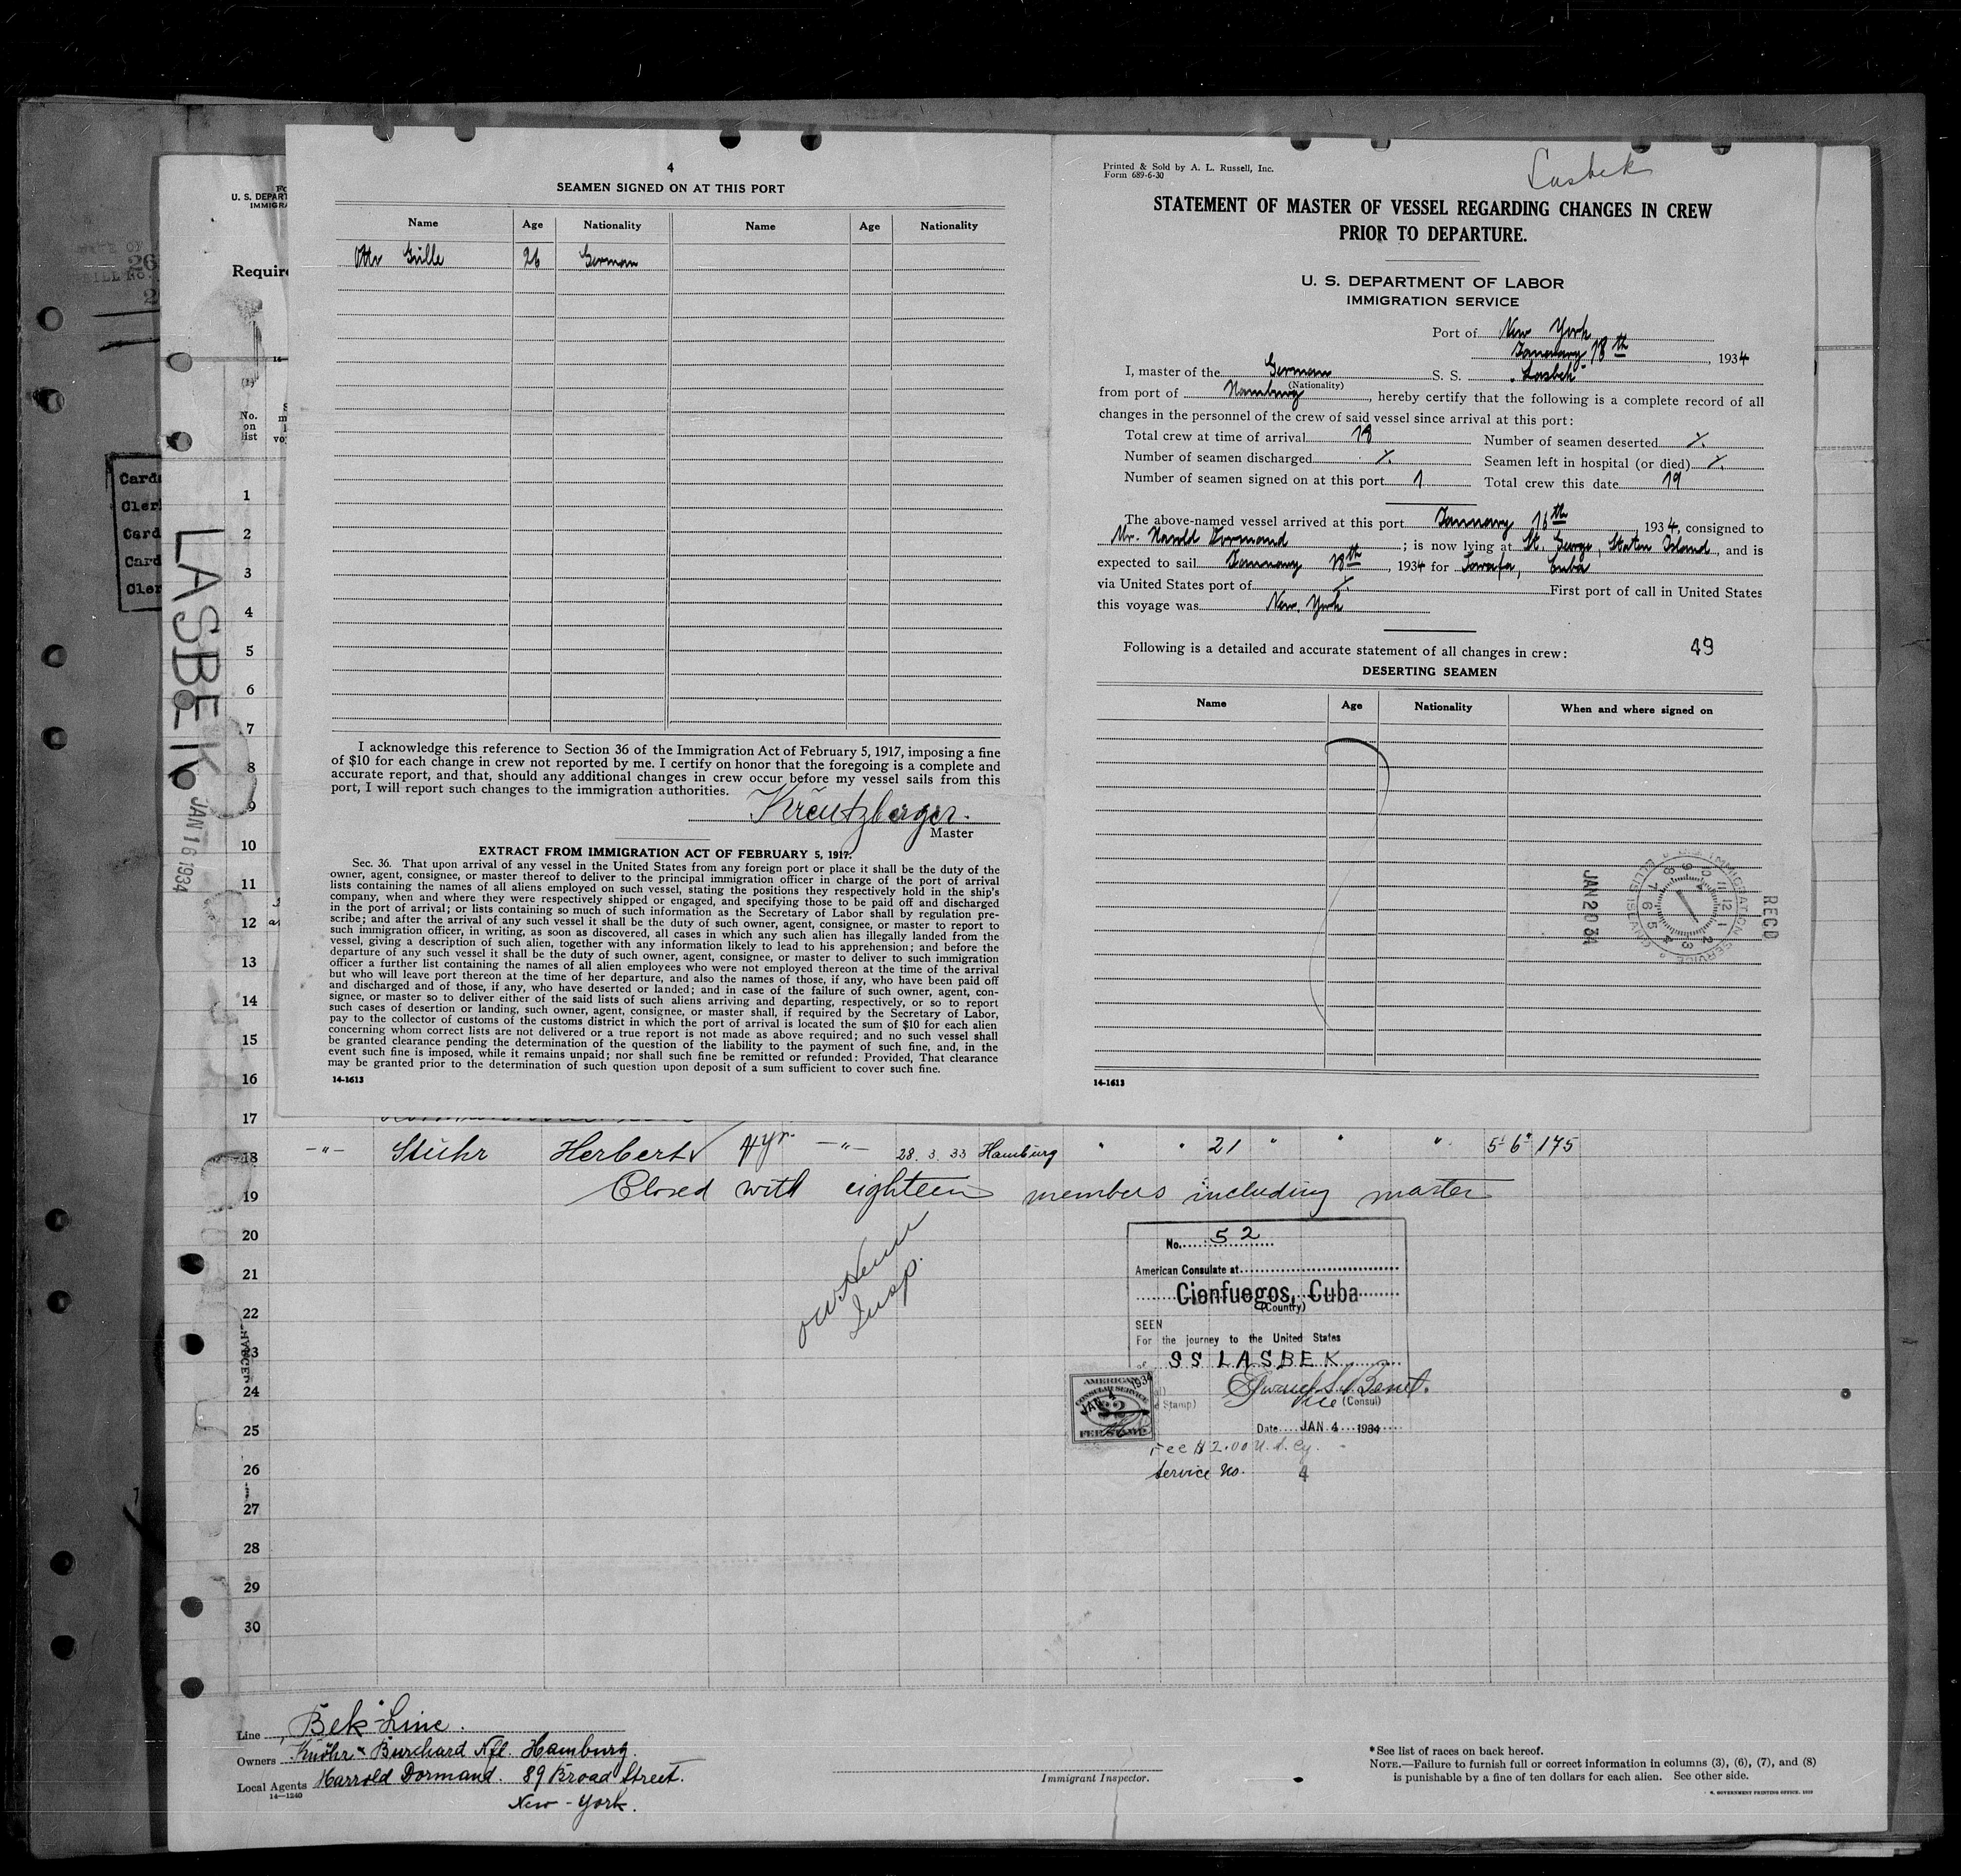 4
SEAMEN SIGNED ON AT THIS PORT
Name Age Nationality Name Age Nationality
Otto Grille 26 German
I acknowledge this reference to Section 36 of the Immigration Act of February 5, 1917, imposing a fine
of $10 for each change in crew not reported by me. I certify on honor that the foregoing is a complete and
accurate report, and that, should any additional changes in crew occur before my vessel sails from this
port, I will report such changes to the immigration authorities.
Kreutzberger.
Master
EXTRACT FROM IMMIGRATION ACT OF FEBRUARY 5, 1917.
Sec. 36. That upon arrival of any vessel in the United States from any foreign port or place it shall be the duty of the
owner, agent, consignee, or master thereof to deliver to the principal immigration officer in charge of the port of arrival
lists containing the names of all aliens employed on such vessel, stating the positions they respectively hold in the ship's
company, when and where they were respectively shipped or engaged, and specifying those to be paid off and discharged
in the port of arrival; or lists containing so much of such information as the Secretary of Labor shall by regulation pre-
scribe; and after the arrival of any such vessel it shall be the duty of such owner, agent, consignee, or master to report to
such immigration officer, in writing, as soon as discovered, all cases in which any such alien has illegally landed from the
vessel, giving a description of such alien, together with any information likely to lead to his apprehension; and before the
departure of any such vessel it shall be the duty of such owner, agent, consignee, or master to deliver to such immigration
officer a further list containing the names of all alien employees who were not employed thereon at the time of the arrival
but who will leave port thereon at the time of her departure, and also the names of those, if any, who have been paid off
and discharged and of those, if any, who have deserted or landed; and in case of the failure of such owner, agent, con-
signee, or master so to deliver either of the said lists of such aliens arriving and departing, respectively, or so to report
such cases of desertion or landing, such owner, agent, consignee, or master shall, if required by the Secretary of Labor,
pay to the collector of customs of the customs district in which the port of arrival is located the sum of $10 for each alien
concerning whom correct lists are not delivered or a true report is not made as above required; and no such vessel shall
be granted clearance pending the determination of the question of the liability to the payment of such fine, and, in the
event such fine is imposed, while it remains unpaid; nor shall such fine be remitted or refunded: Provided, That clearance
may be granted prior to the determination of such question upon deposit of a sum sufficient to cover such fine.
14-1613
Printed & Sold by A. L. Russell, Inc.
Form 689-6-30
Lasbek
STATEMENT OF MASTER OF VESSEL REGARDING CHANGES IN CREW
PRIOR TO DEPARTURE.
U. S. DEPARTMENT OF LABOR
IMMIGRATION SERVICE
Port of New York
January 18th, 1934
I, master of the German S. S. "Lasbek"
(Nationality)
from port of Hamburg, hereby certify that the following is a complete record of all
changes in the personnel of the crew of said vessel since arrival at this port:
Total crew at time of arrival 18 Number of seamen deserted ./.
Number of seamen discharged ./. Seamen left in hospital (or died) ./.
Number of seamen signed on at this port 1 Total crew this date 19
The above-named vessel arrived at this port January 16th, 1934, consigned to
Mr. Harold Dormand; is now lying at St. George, Staten Island, and is
expected to sail January 18th, 1934 for Tarafa, Cuba
via United States port of ./. First port of call in United States
this voyage was New York
Following is a detailed and accurate statement of all changes in crew: 49
DESERTING SEAMEN
Name Age Nationality When and where signed on
JAN 20 34
RECD
14-1613
U. S. DEPART
IMMIGRA
Require
No.
on
list
LASBEK
JAN 16 1934
1
2
3
4
5
6
7
8
9
10
11
12
13
14
15
16
17
18 -"- Stuhr Herbert 4 yr. -"- 28. 3. 33 Hamburg " " 21 " " " 5' 6" 175
19 Closed with eighteen members including master
20
21
22
23
24
25
26
27
28
29
30
Insp.
No. 52
American Consulate at
Cienfuegos, Cuba
(Country)
SEEN
For the journey to the United States
of SS LASBEK
Vice (Consul)
Stamp)
Date JAN 4 1934
Fee $2.00 U.S. Cy.
Service No. 4
AMERICAN
CONSULAR SERVICE
JAN 4 1934
$2
FEE STAMP
Line Bek-Line.
Owners Knöhr & Burchard Nfl. Hamburg.
Local Agents Harrold Dormand. 89 Broad Street.
14-1240
New-York.
Immigrant Inspector.
*See list of races on back hereof.
NOTE.—Failure to furnish full or correct information in columns (3), (6), (7), and (8)
is punishable by a fine of ten dollars for each alien. See other side.